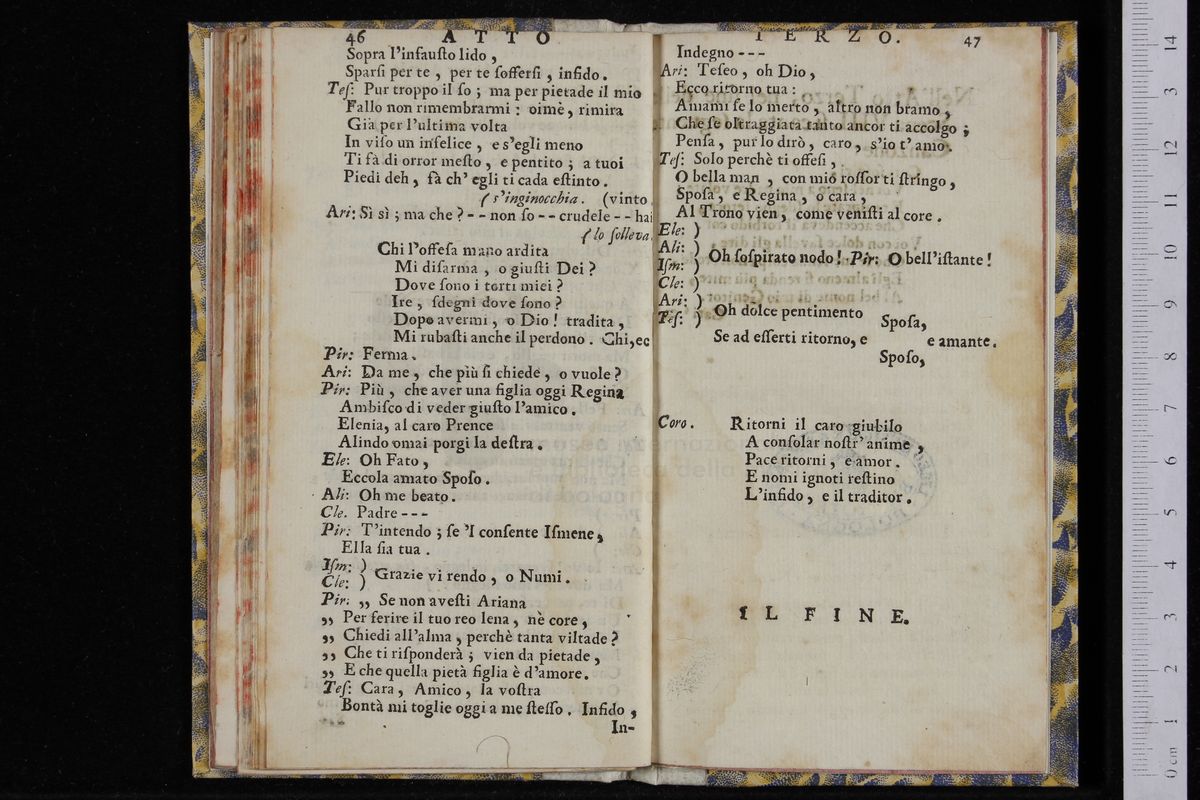 46 ATTO
Sopra l'infauſto lido,
Sparſi per te, per te ſofferſi, infido.
Teſ: Pur troppo il ſo; ma per pietade il mio
Fallo non rimembrarmi: oimè, rimira
Già per l'ultima volta
In viſo un infelice, e s'egli meno
Ti fà di orror meſto, e pentito; a tuoi
Piedi deh, fà ch' egli ti cada eſtinto.
(s'inginocchia. (vinto
Ari: Sì sì; ma che? -- non ſo -- crudele -- hai
(lo ſolleva.
Chi l'offeſa mano ardita
Mi diſarma, o giuſti Dei?
Dove ſono i torti miei?
Ire, ſdegni dove ſono?
Dopo avermi, o Dio! tradita,
Mi rubaſti anche il perdono. Chi, ec
Pir: Ferma.
Ari: Da me, che più ſi chiede, o vuole?
Pir: Più, che aver una figlia oggi Regina
Ambiſco di veder giuſto l'amico.
Elenia, al caro Prence
Alindo omai porgi la deſtra.
Ele: Oh Fato,
Eccola amato Spoſo.
Ali: Oh me beato.
Cle. Padre ---
Pir: T'intendo; ſe 'l conſente Iſmene,
Ella ſia tua.
Iſm: )
Cle: ) Grazie vi rendo, o Numi.
Pir: „ Se non aveſti Ariana
„ Per ferire il tuo reo lena, nè core,
„ Chiedi all'alma, perchè tanta viltade?
„ Che ti riſponderà; vien da pietade,
„ E che quella pietà figlia è d'amore.
Teſ: Cara, Amico, la voſtra
Bontà mi toglie oggi a me ſteſſo. Infido,
In-
TERZO. 47
Indegno ---
Ari: Teſeo, oh Dio,
Ecco ritorno tua:
Amami ſe lo merto, altro non bramo,
Che ſe oltraggiata tanto ancor ti accolgo;
Penſa, pur lo dirò, caro, s'io t' amo.
Teſ: Solo perchè ti offeſi,
O bella man, con mio roſſor ti ſtringo,
Spoſa, e Regina, o cara,
Al Trono vien, come veniſti al core.
Ele: )
Ali: )
Iſm: ) Oh ſoſpirato nodo! Pir: O bell'iſtante!
Cle: )
Ari: )
Teſ: ) Oh dolce pentimento
Spoſa,
Se ad eſſerti ritorno, e e amante.
Spoſo,
Coro. Ritorni il caro giubilo
A conſolar noſtr'anime,
Pace ritorni, e amor.
E nomi ignoti reſtino
L'infido, e il traditor.
IL FINE.